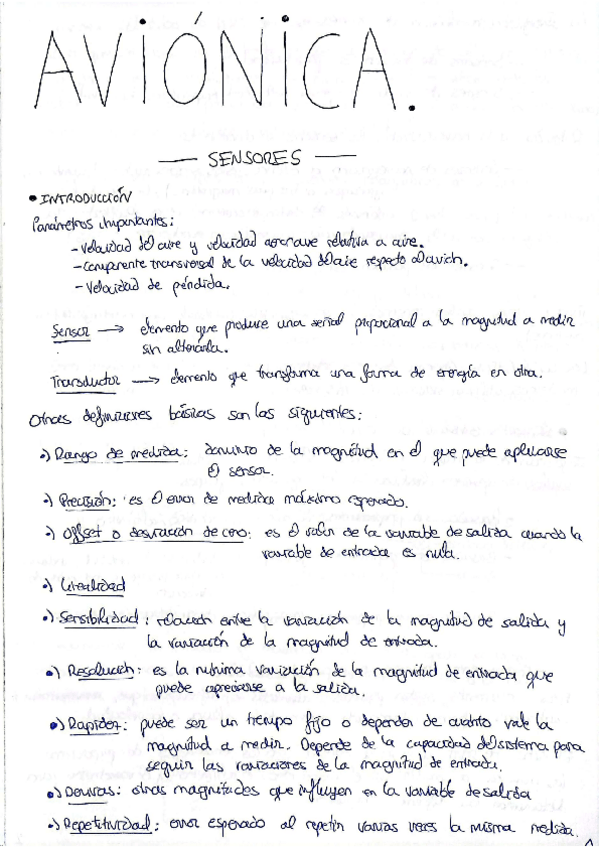 AVIÓNICA.
— SENSORES —
• INTRODUCCIÓN
Parámetros importantes:
- Velocidad del aire y velocidad aeronave relativa a aire.
- Componente transversal de la velocidad del aire respecto al avión.
- Velocidad de pérdida.
Sensor → elemento que produce una señal proporcional a la magnitud a medir
sin alterarla.
Transductor → elemento que transforma una forma de energía en otra.
Otras definiciones básicas son las siguientes:
•) Rango de medida: dominio de la magnitud en el que puede aplicarse
el sensor.
•) Precisión: es el error de medida máximo esperado.
•) Offset o desviación de cero: es el valor de la variable de salida cuando la
variable de entrada es nula.
•) Linealidad
•) Sensibilidad: relación entre la variación de la magnitud de salida y
la variación de la magnitud de entrada.
•) Resolución: es la mínima variación de la magnitud de entrada que
puede apreciarse a la salida.
•) Rapidez: puede ser un tiempo fijo o depender de cuánto vale la
magnitud a medir. Depende de la capacidad del sistema para
seguir las variaciones de la magnitud de entrada.
•) Derivas: otras magnitudes que influyen en la variable de salida
•) Repetitividad: error esperado al repetir varias veces la misma medida.